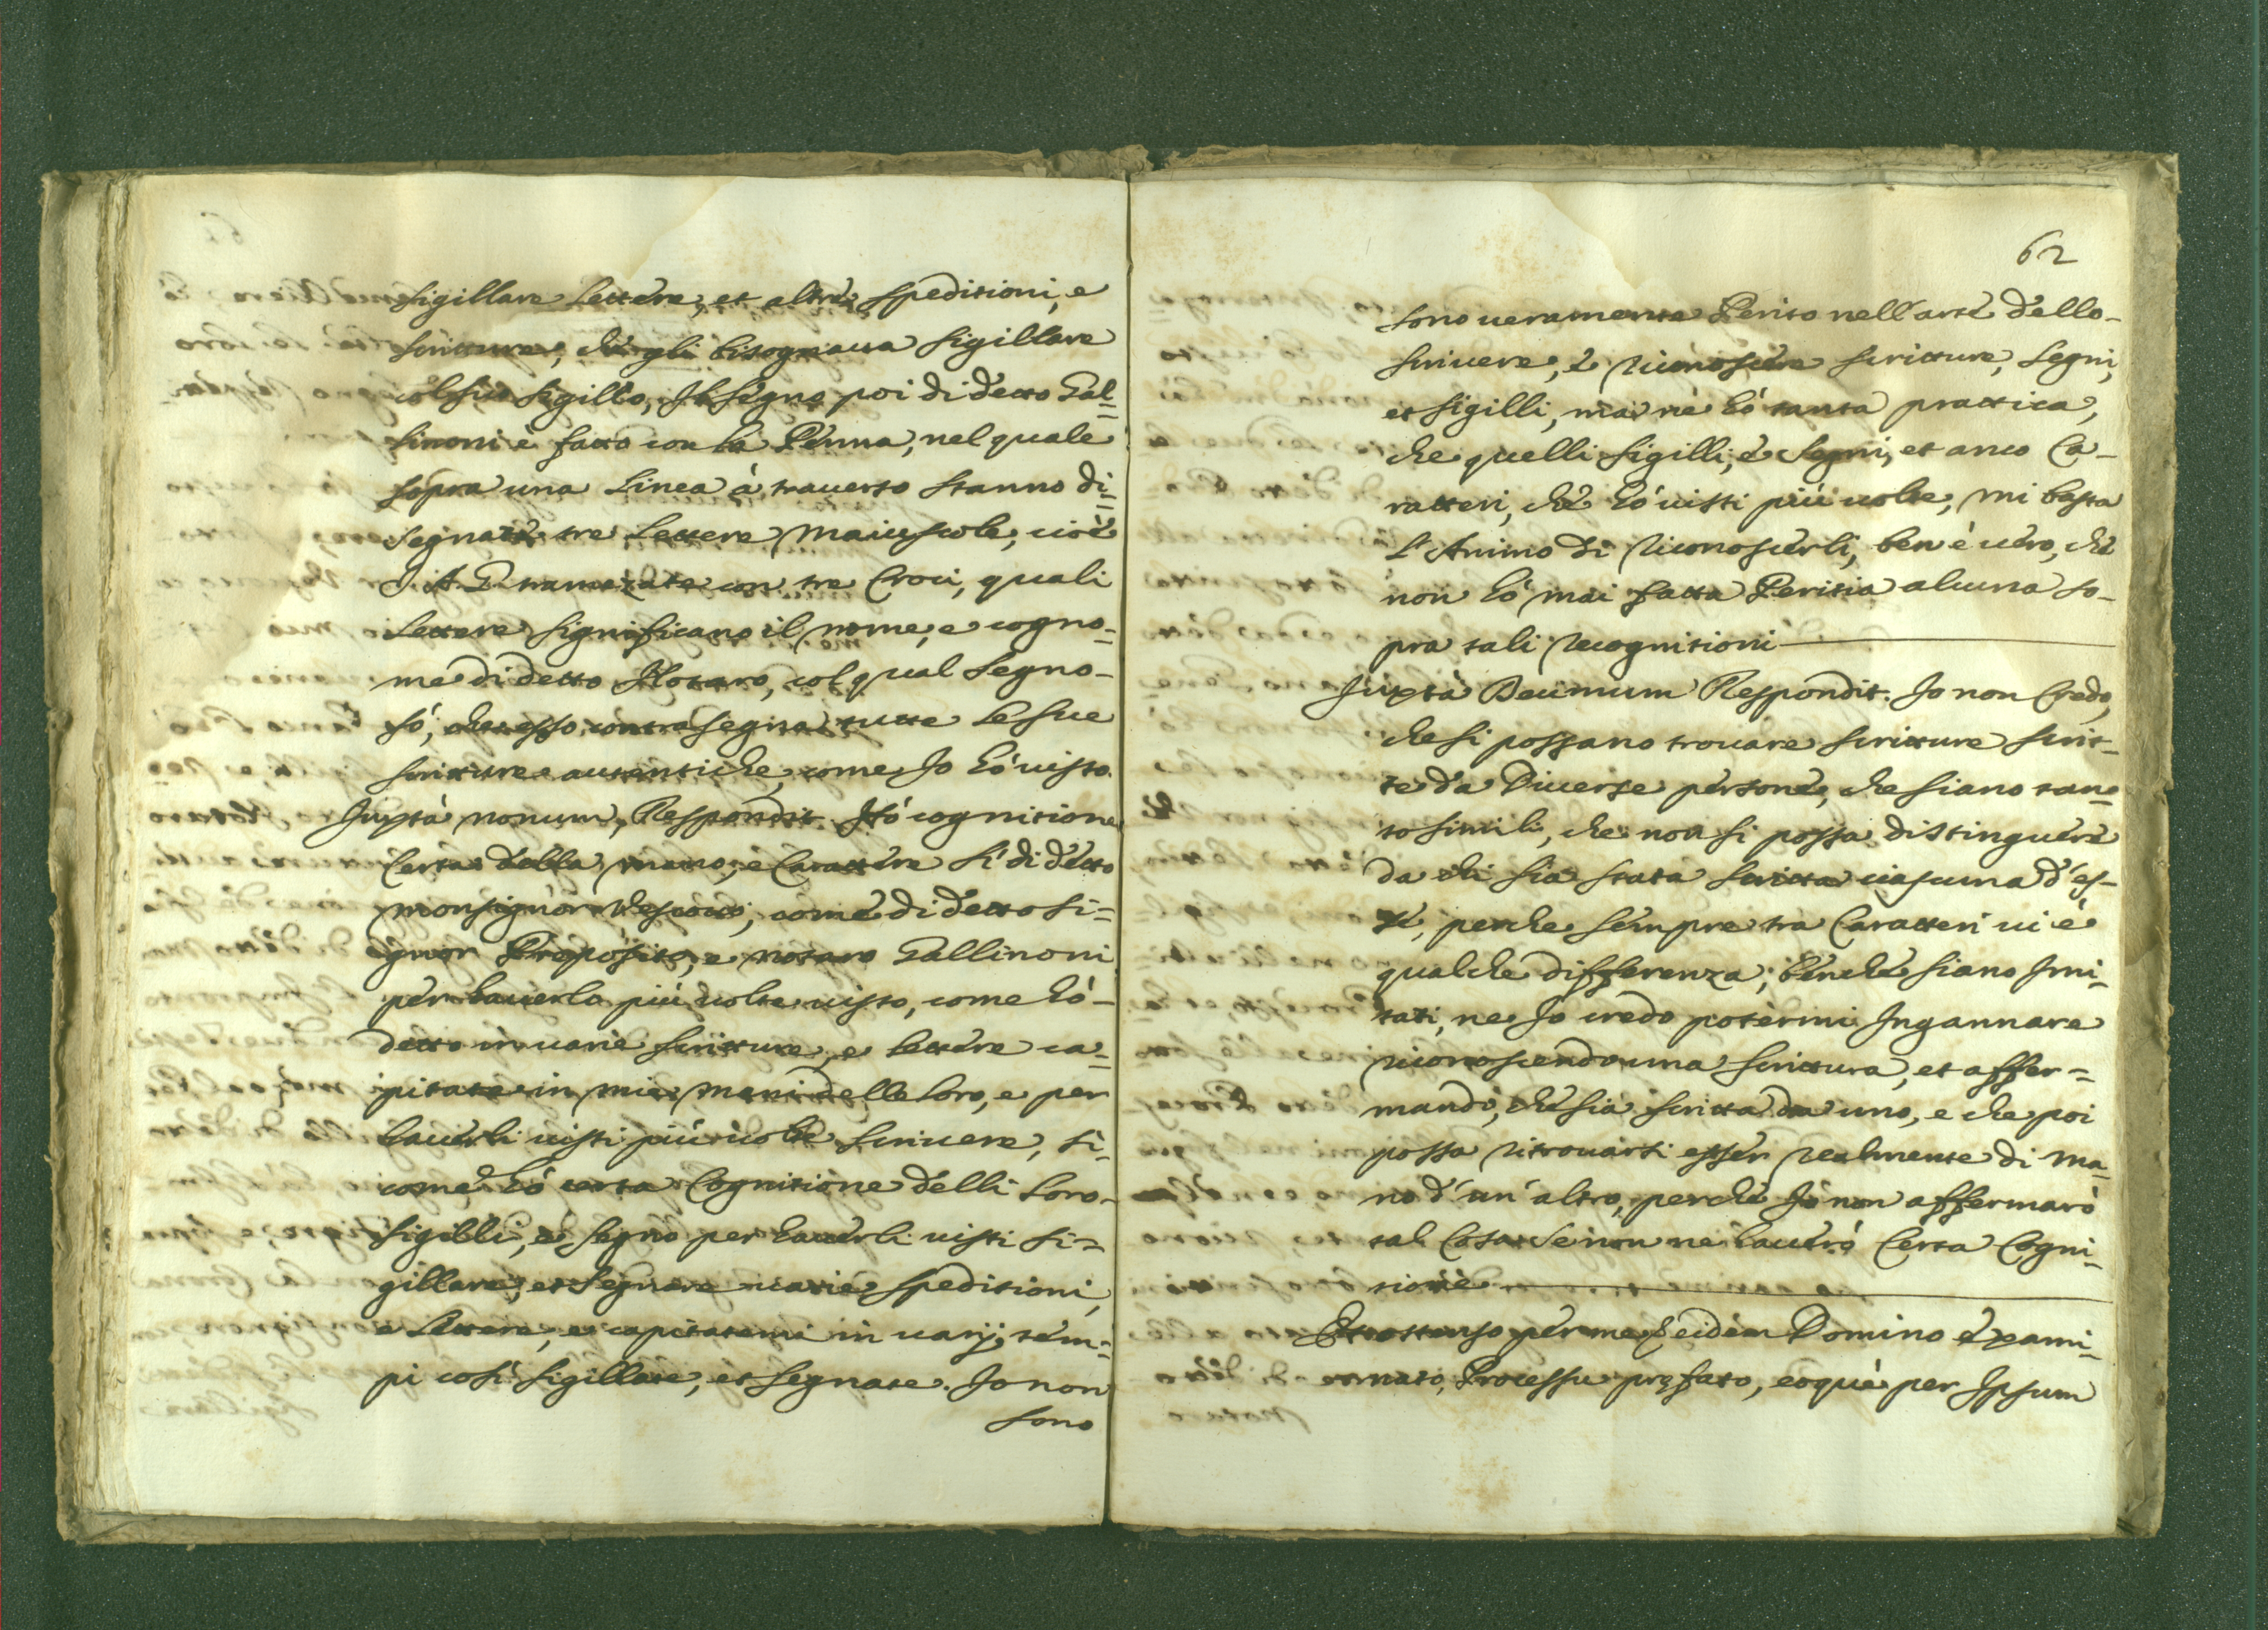 sigillare lettere, et altre speditioni, e
scritture, che gli bisognaua sigillare
col suo sigillo, Il segno poi di detto Gal=
linoni è fatto con la Penna, nel quale
sopra una Linea à trauerso stanno di=
segnate tre Lettere Maiuscole, cioè
I. A. G. tramezate con tre Croci, quali
Lettere significano il nome, e cogno=
me di detto Notaro, col qual Segno-
sò, che esso contrasegna tutte le sue
scritture autentiche, come Io hò uisto.
Juxtà nonum, Respondit. Hò cognitione
Certa della mano, e Carattere sì di detto
Monsignor Vescouo, come di detto Si=
gnor Proposito, e notaro Gallinoni
per hauerlo più uolte uisto, come hò-
detto in uarie scritture, e lettere ca=
pitate in mie mani delle loro, e per
hauerli uisti più uolte scriuere, sì
come hò certa Cognitione delli loro-
sigilli, e segno per hauerli uisti si=
gillare, et segnare uarie speditioni,
e lettere, e capitatemi in uarij tem=
pi così sigillate, et segnate. Io non
sono
62
sono ueramente Perito nell'arte dello-
scriuere, e riconoscere scritture, segni,
et sigilli, mà nè hò tanta prattica,
che quelli sigilli, e segni, et anco Ca-
ratteri, che hò uisti più uolte, mi basta
l'Animo di riconoscerli, ben è uero, che
non hò mai fatta Peritia alcuna so-
pra tali recognitioni
Juxtà Decimum Respondit. Io non Credo,
che si possano trouare scritture scrit-
te da Diuerse persone, che siano tan=
to simili, che non si possa distinguere
da chi sia stata scritta ciascuna d'es-
se, perche sempre tra Caratteri ui è
qualche differenza, benche siano Imi=
tati, ne Io credo potermi Ingannare
riconoscendo una scrittura, et affer=
mando, che sia scritta da uno, e che poi
possa ritrouarsi esser realmente di ma=
no d'un' altro, perche Io non affermarò
tal Cosa se non ne hauerò Certa Cogni=
tione
Et ostenso per me eidem Domino exami=
nato, Processu prefato, eoque per Ipsum